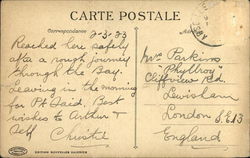 CARTE POSTALE
Correspondance
2-3-33
Reached here safely
after a rough journey
through the Bay.
Leaving in the morning
for Pt Said. Best
wishes to Arthur &
Self
Mrs Parkins
"Phyltroy"
Cliffview Rd.
Lewisham
London S.E.13
England